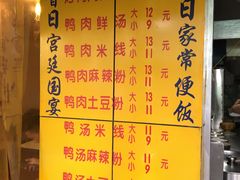 昔日宫廷国宴
今日家常便饭
鸭肉鲜汤 大小 12 11 元
鸭肉米线 大小 13 11 元
鸭肉麻辣粉 大小 13 11 元
鸭肉土豆粉 大小 13 11 元
鸭汤米线 大小 11 9 元
鸭汤麻辣粉 大小 11 9 元
鸭汤土豆